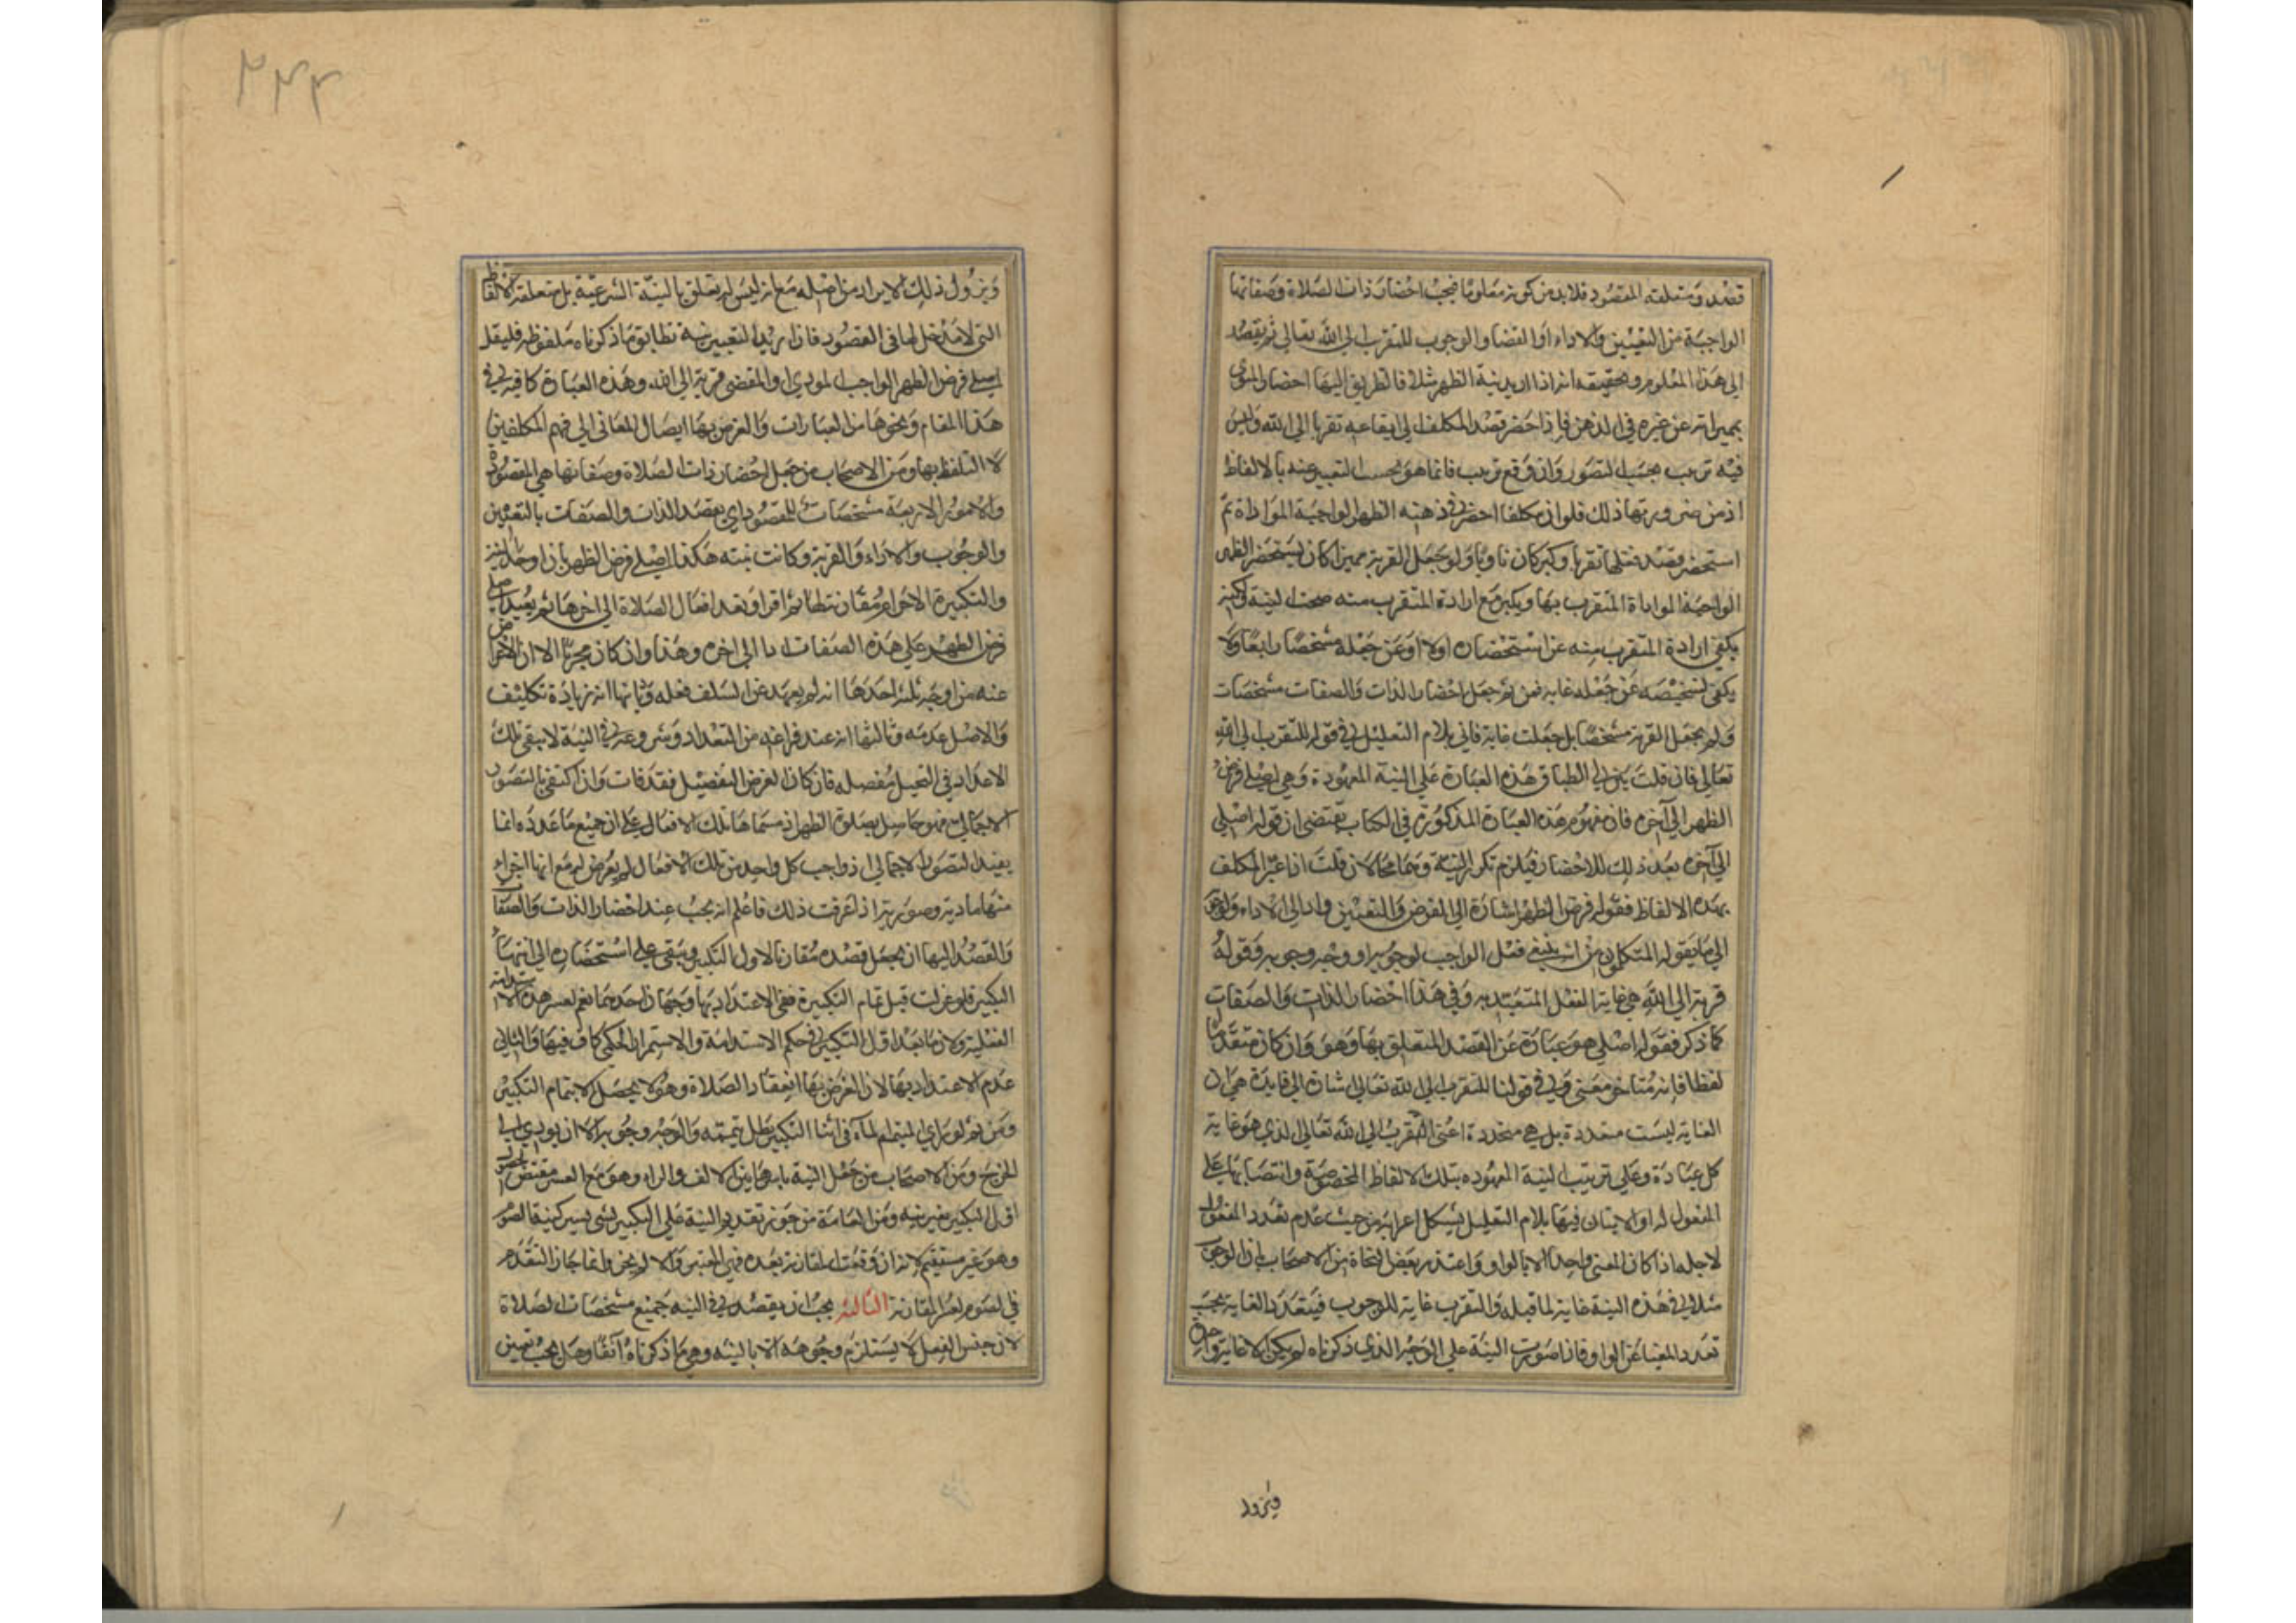 قصد ومتعلقه المقصود فلابد من كونه معلوما فيجب احضار ذات الصلاة وصفاتها
الواجبة من التعيين والاداء او القضا والوجوب للتقرب الى الله تعالى ثم يقصد
الى هذا المعلوم وتحقيقه انه اذا اريد نية الظهر مثلا فالطريق اليها احضار المنوي
بمميزاته عن غيره في الذهن فاذا حضر قصد المكلف الى ايقاعه تقربا الى الله وليس
فيه ترتيب بحسب التصور وان وقع ترتيب فانما هو بحسب التعبير عنه بالالفاظ
اذ من ضرورتها ذلك فلو ان مكلفا احضر في ذهنه الظهر الواجبة المؤداة ثم
استحضر قصد فعلها تقربا وكبر كان ناويا ولو جعل القربة مميزا كان يستحضر الظهر
الواجبة المؤداة المتقرب بها ويكبر مع ارادة المتقرب منه صحت النية ولكنه
يكفي ارادة المتقرب منه عن استحضاره اولا او عن جعله مشخصا رابعا ولا
يكفي تشخيصه عن جعله غاية فمن ثم جعل احضار الذات والصفات مشخصات
ولم يجعل القربة مشخصا بل جعلت غاية فاتى بلام التعليل في قوله للتقرب الى الله
تعالى فان قلت ين لي انطباق هذه العبارة على النية المعهودة وهي اصلي فرض
الظهر الى آخره فان مفهوم هذه العبارة المذكورة في الكتاب يقتضي ان قوله اصلي
الى آخره بعد ذلك الاحضار فيلزم تكرار النية وهما محالان قلت اذا عبر المكلف
بهذه الالفاظ فقوله فرض الظهر اشارة الى الفرض والتعيين وادا الى الاداء ولوجوبه
الى ما يقوله المتكلمون من انه ينبغي فعل الواجب لوجوبه او وجه وجوبه وقوله
قربة الى الله هي غاية الفعل المتعبد به وفي هذا احضار الذات والصفات
كما ذكر فقوله اصلي هو عبارة عن القصد المتعلق بها وهو وان كان متقدما
لفظا فانه متاخر معنى وفي قولنا للتقرب الى الله تعالى اشارة الى فايدة هي ان
الغاية ليست متعددة بل هي متحدة اعني التقرب الى الله تعالى الذي هو غاية
كل عبادة وعلى ترتيب النية المعهودة بتلك الالفاظ المخصوصة وانتصابها على
المفعول له او الاتيان فيها بلام التعليل يشكل اعرابه من حيث عدم تعدد المفعول
لاجله اذا كان المعنى واحدا الا بالواو واعتذر بعض النحاة من الاصحاب بان الوجوب
مثلا في هذه النية غاية لما قبله والتقرب غاية للوجوب فيتعدد الغاية بحسب
تعدد المغيا عن الواو فاذا صورت النية على الوجه الذي ذكرناه لم يكن الا غاية واحدة
ويزول
٢٤٣
ويزول ذلك الايراد من اصله مع انه ليس له تعلق بالنية الشرعية بل متعلقه الالفاظ
التي لا مدخل لها في المقصود فاذا اريد التعبير بنية تطابق ما ذكرناه ملفوظه فليقل
اصلي فرض الظهر الواجب المودى او المقضي قربة الى الله وهذه العبارة كافية في
هذا المقام ونحوها من العبارات والغرض بها ايصال المعاني الى فهم المكلفين
لا التلفظ بها ومن الاصحاب من جعل احضار ذات الصلاة وصفاتها هي المقصودة
والامور الاربعة مشخصات للمقصود اي يقصد الذات والصفات بالتعيين
والوجوب والاداء والقربة وكانت نيته هكذا اصلي فرض الظهر بان اوجد النية
والتكبيرة الاحرام مقارنة لها ثم اقرا وتعد افعال الصلاة الى اخرها ثم يعيد اصلي
فرض الظهر على هذه الصفات ادا الى اخره وهذا وان كان مجزيا الا ان الاعراض
عنه من اوجه ثلثة احدها انه لم يعهد عن السلف فعله وثانيها انه زيادة تكليف
والاصل عدمه وثالثها انه عند فراغه من التعداد وشروعه في النية لا تبقى تلك
الاعداد في التخيل مفصلة فان كان الغرض التفصيل فقد فات وان اكتفي بالتصور
الاجمالي فهو حاصل بصلوة الظهر اذ مسماها تلك الافعال على ان جميع ما عدده انما
يفيد التصور الاجمالي اذ واجب كل واحد من تلك الافعال لم يعرض له مع انها اجزاء
منها مادية وصورية اذا عرفت ذلك فاعلم انه يجب عند احضار الذات والصفات
والقصد اليها ان يجعل قصده مقارنا لاول التكبير ويبقى على استحضاره الى انتهاء
التكبير فلو عزبت قبل تمام التكبيرة ففي الاعتداد بها وجهان احدهما نعم لعسر هذه الاستدامة
الفعلية ولان ما بعد اول التكبير في حكم الاستدامة والاستمرار الحكمي كاف فيها والثاني
عدم الاعتداد بها لان الغرض بها انعقاد الصلاة وهو لا يحصل الا بتمام التكبير
ومن ثم لو راى المتيمم الماء في اثناء التكبير بطل تيممه والوجه وجوبه الا ان يودي الى
الحرج ومن الاصحاب من جعل النية باسرها بين الالف والراء وهو مع العسر مقتض لحصول
اول التكبير بغير نية ومن العامة من جوز تقديم النية على التكبير بشيء يسير كنية الصوم
وهو غير مستقيم لانه ان وقعت المقارنة بعده فهي المعتبر والا لم يجز وانما جاز التقدم
في الصوم لعسر المقارنة الثالثة يجب ان يقصد في النية جميع مشخصات الصلاة
لان جنس الفعل لا يستلزم وجوهه الا بالنية وهي ما ذكرناه آنفا وهل يجب تعيين